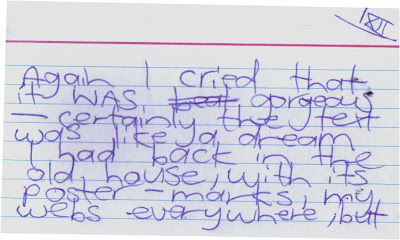 XII
Again I cried that
it WAS, gorgeous
— certainly the text
was like a dream
I had back in the
old house, with its
poster-marks, my
webs everywhere, but